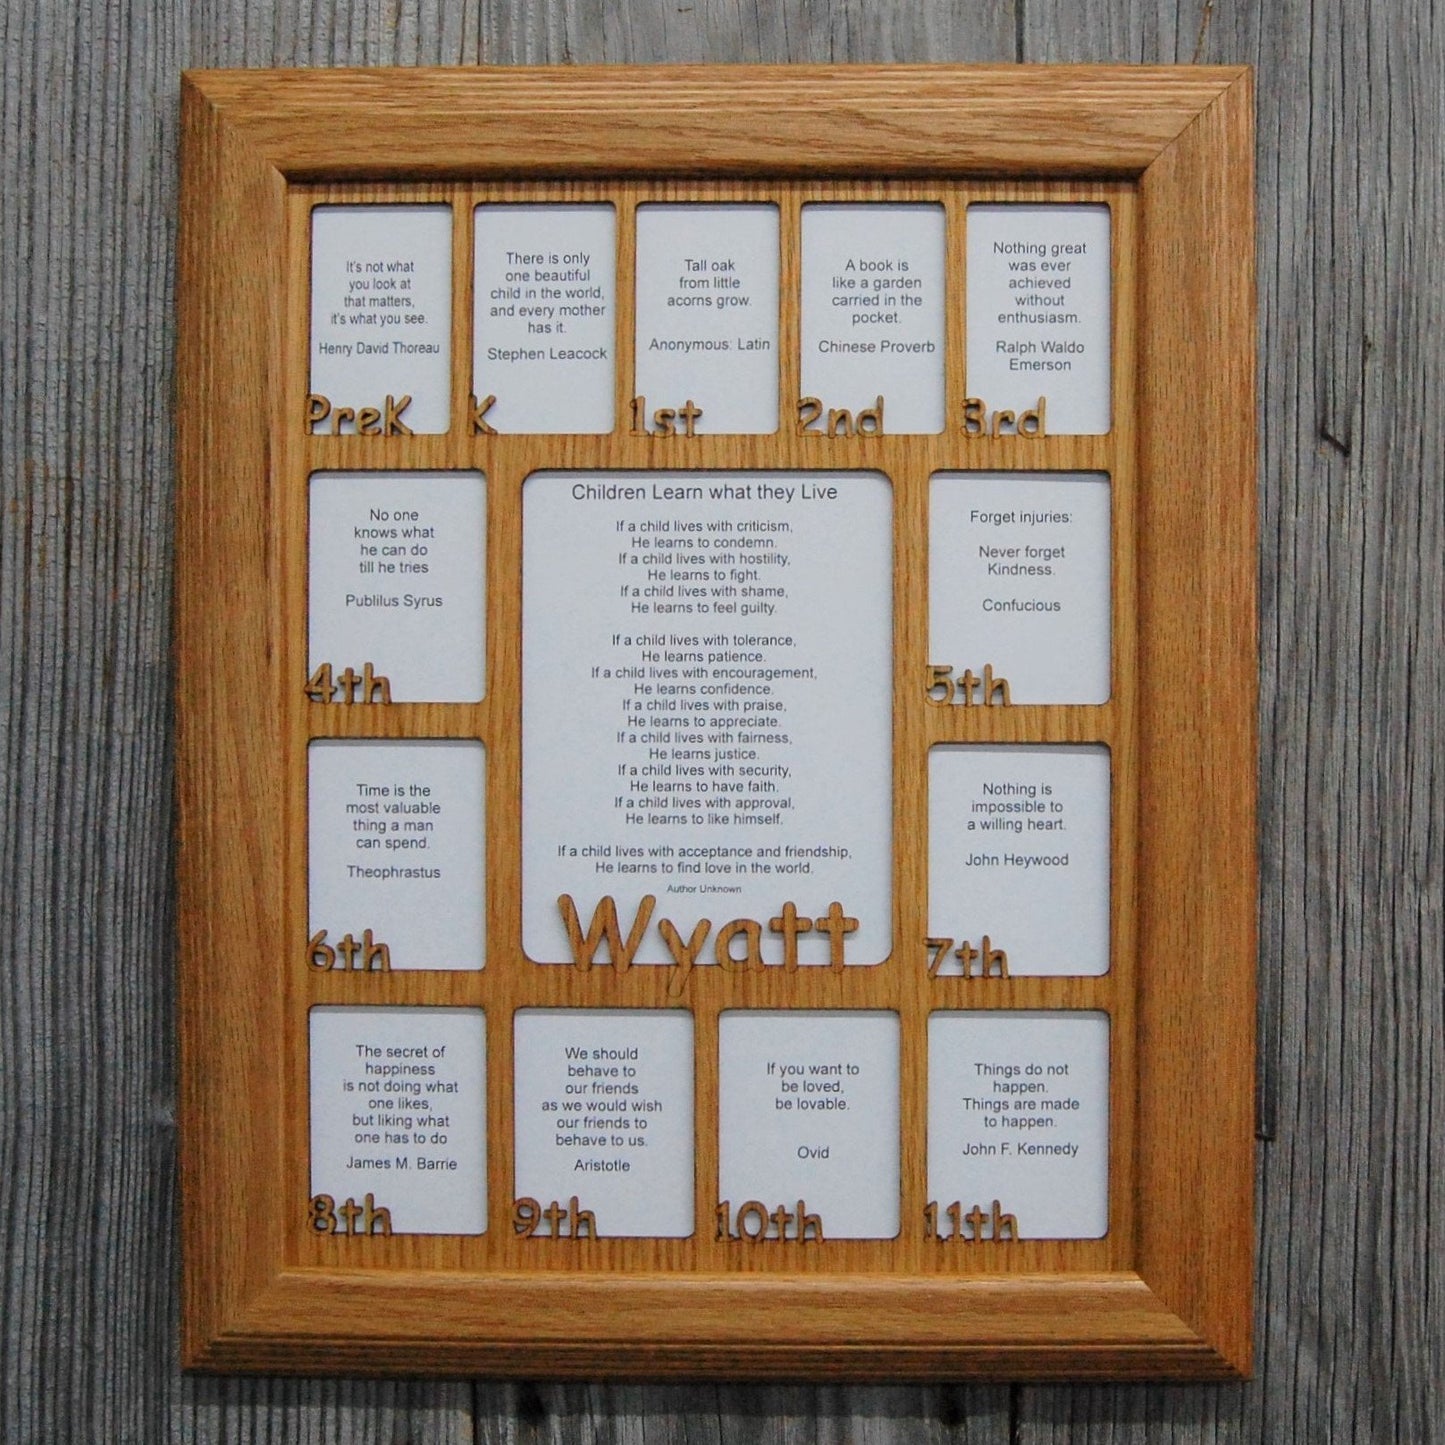 It's not what
you look at
that matters,
it's what you see.
Henry David Thoreau
PreK
There is only
one beautiful
child in the world,
and every mother
has it.
Stephen Leacock
K
Tall oak
from little
acorns grow.
Anonymous: Latin
1st
A book is
like a garden
carried in the
pocket.
Chinese Proverb
2nd
Nothing great
was ever
achieved
without
enthusiasm.
Ralph Waldo
Emerson
3rd
No one
knows what
he can do
till he tries
Publilus Syrus
4th
Children Learn what they Live
If a child lives with criticism,
He learns to condemn.
If a child lives with hostility,
He learns to fight.
If a child lives with shame,
He learns to feel guilty.
If a child lives with tolerance,
He learns patience.
If a child lives with encouragement,
He learns confidence.
If a child lives with praise,
He learns to appreciate.
If a child lives with fairness,
He learns justice.
If a child lives with security,
He learns to have faith.
If a child lives with approval,
He learns to like himself.
If a child lives with acceptance and friendship,
He learns to find love in the world.
Author Unknown
Wyatt
Forget injuries:
Never forget
Kindness.
Confucious
5th
Time is the
most valuable
thing a man
can spend.
Theophrastus
6th
Nothing is
impossible to
a willing heart.
John Heywood
7th
The secret of
happiness
is not doing what
one likes,
but liking what
one has to do
James M. Barrie
8th
We should
behave to
our friends
as we would wish
our friends to
behave to us.
Aristotle
9th
If you want to
be loved,
be lovable.
Ovid
10th
Things do not
happen.
Things are made
to happen.
John F. Kennedy
11th